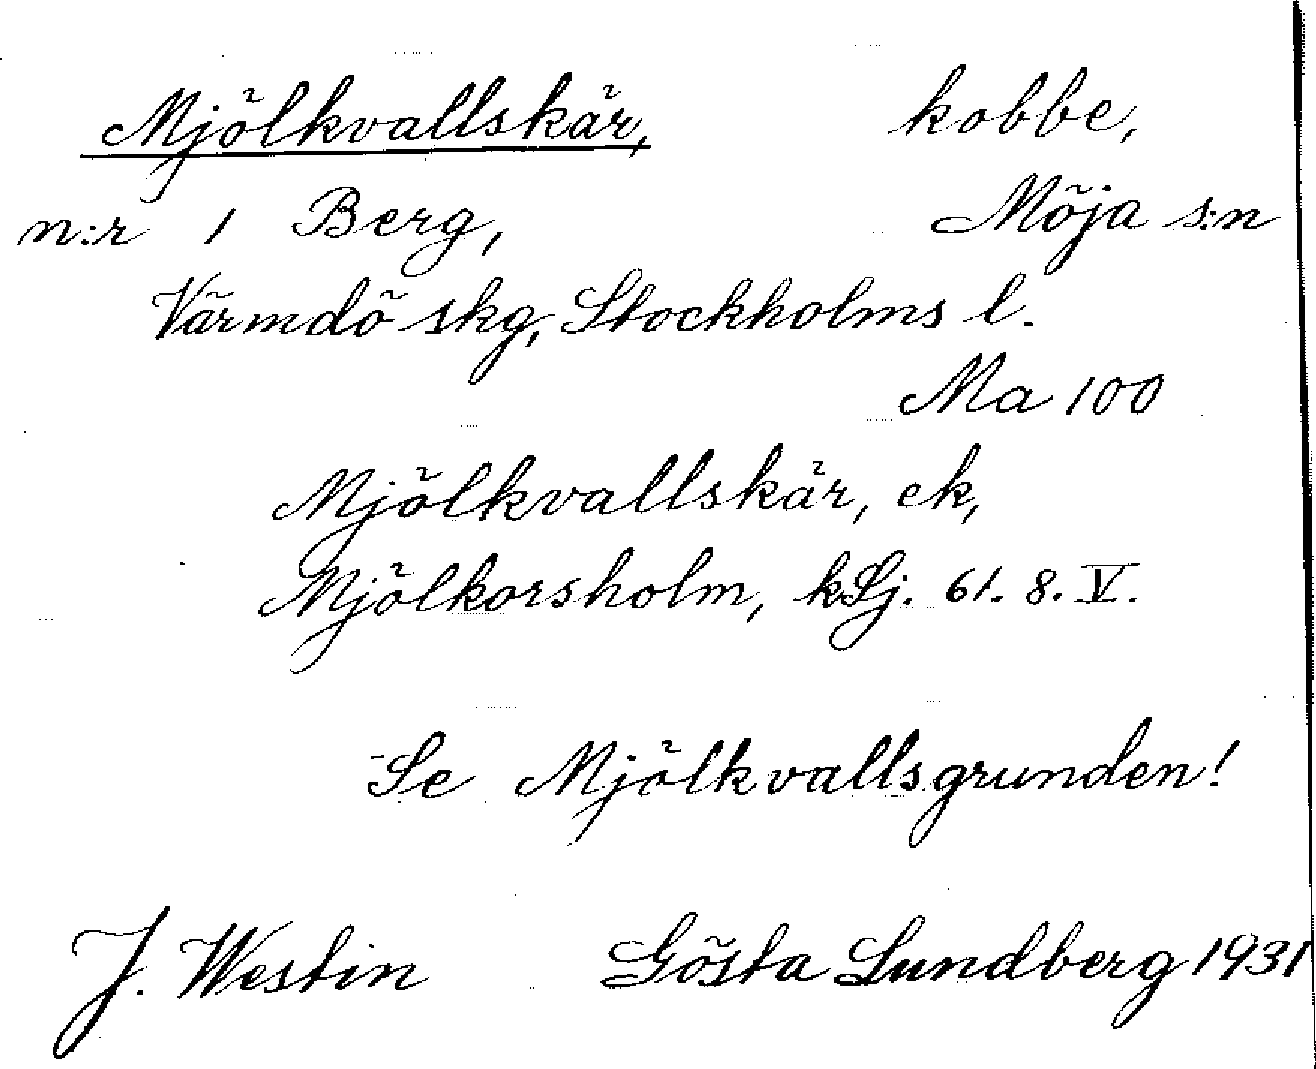 Mjölkvallskär, kobbe,
n:r 1 Berg, Möja s:n
Värmdö skg, Stockholms l.
Ma 100
Mjölkvallskär, ek,
Mjölkorsholm, kSj. 61. 8. V.
Se Mjölkvallsgrunden!
J. Westin Gösta Lundberg 1931